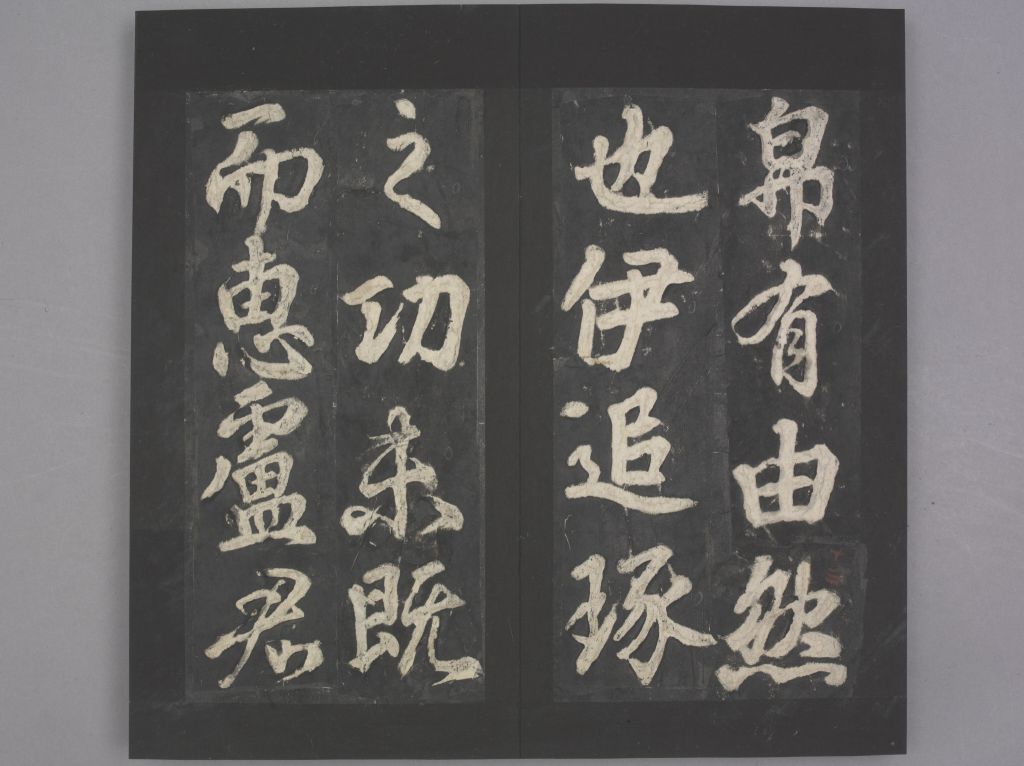 帛有由然
也伊追琢
之功未既
而惠盧君